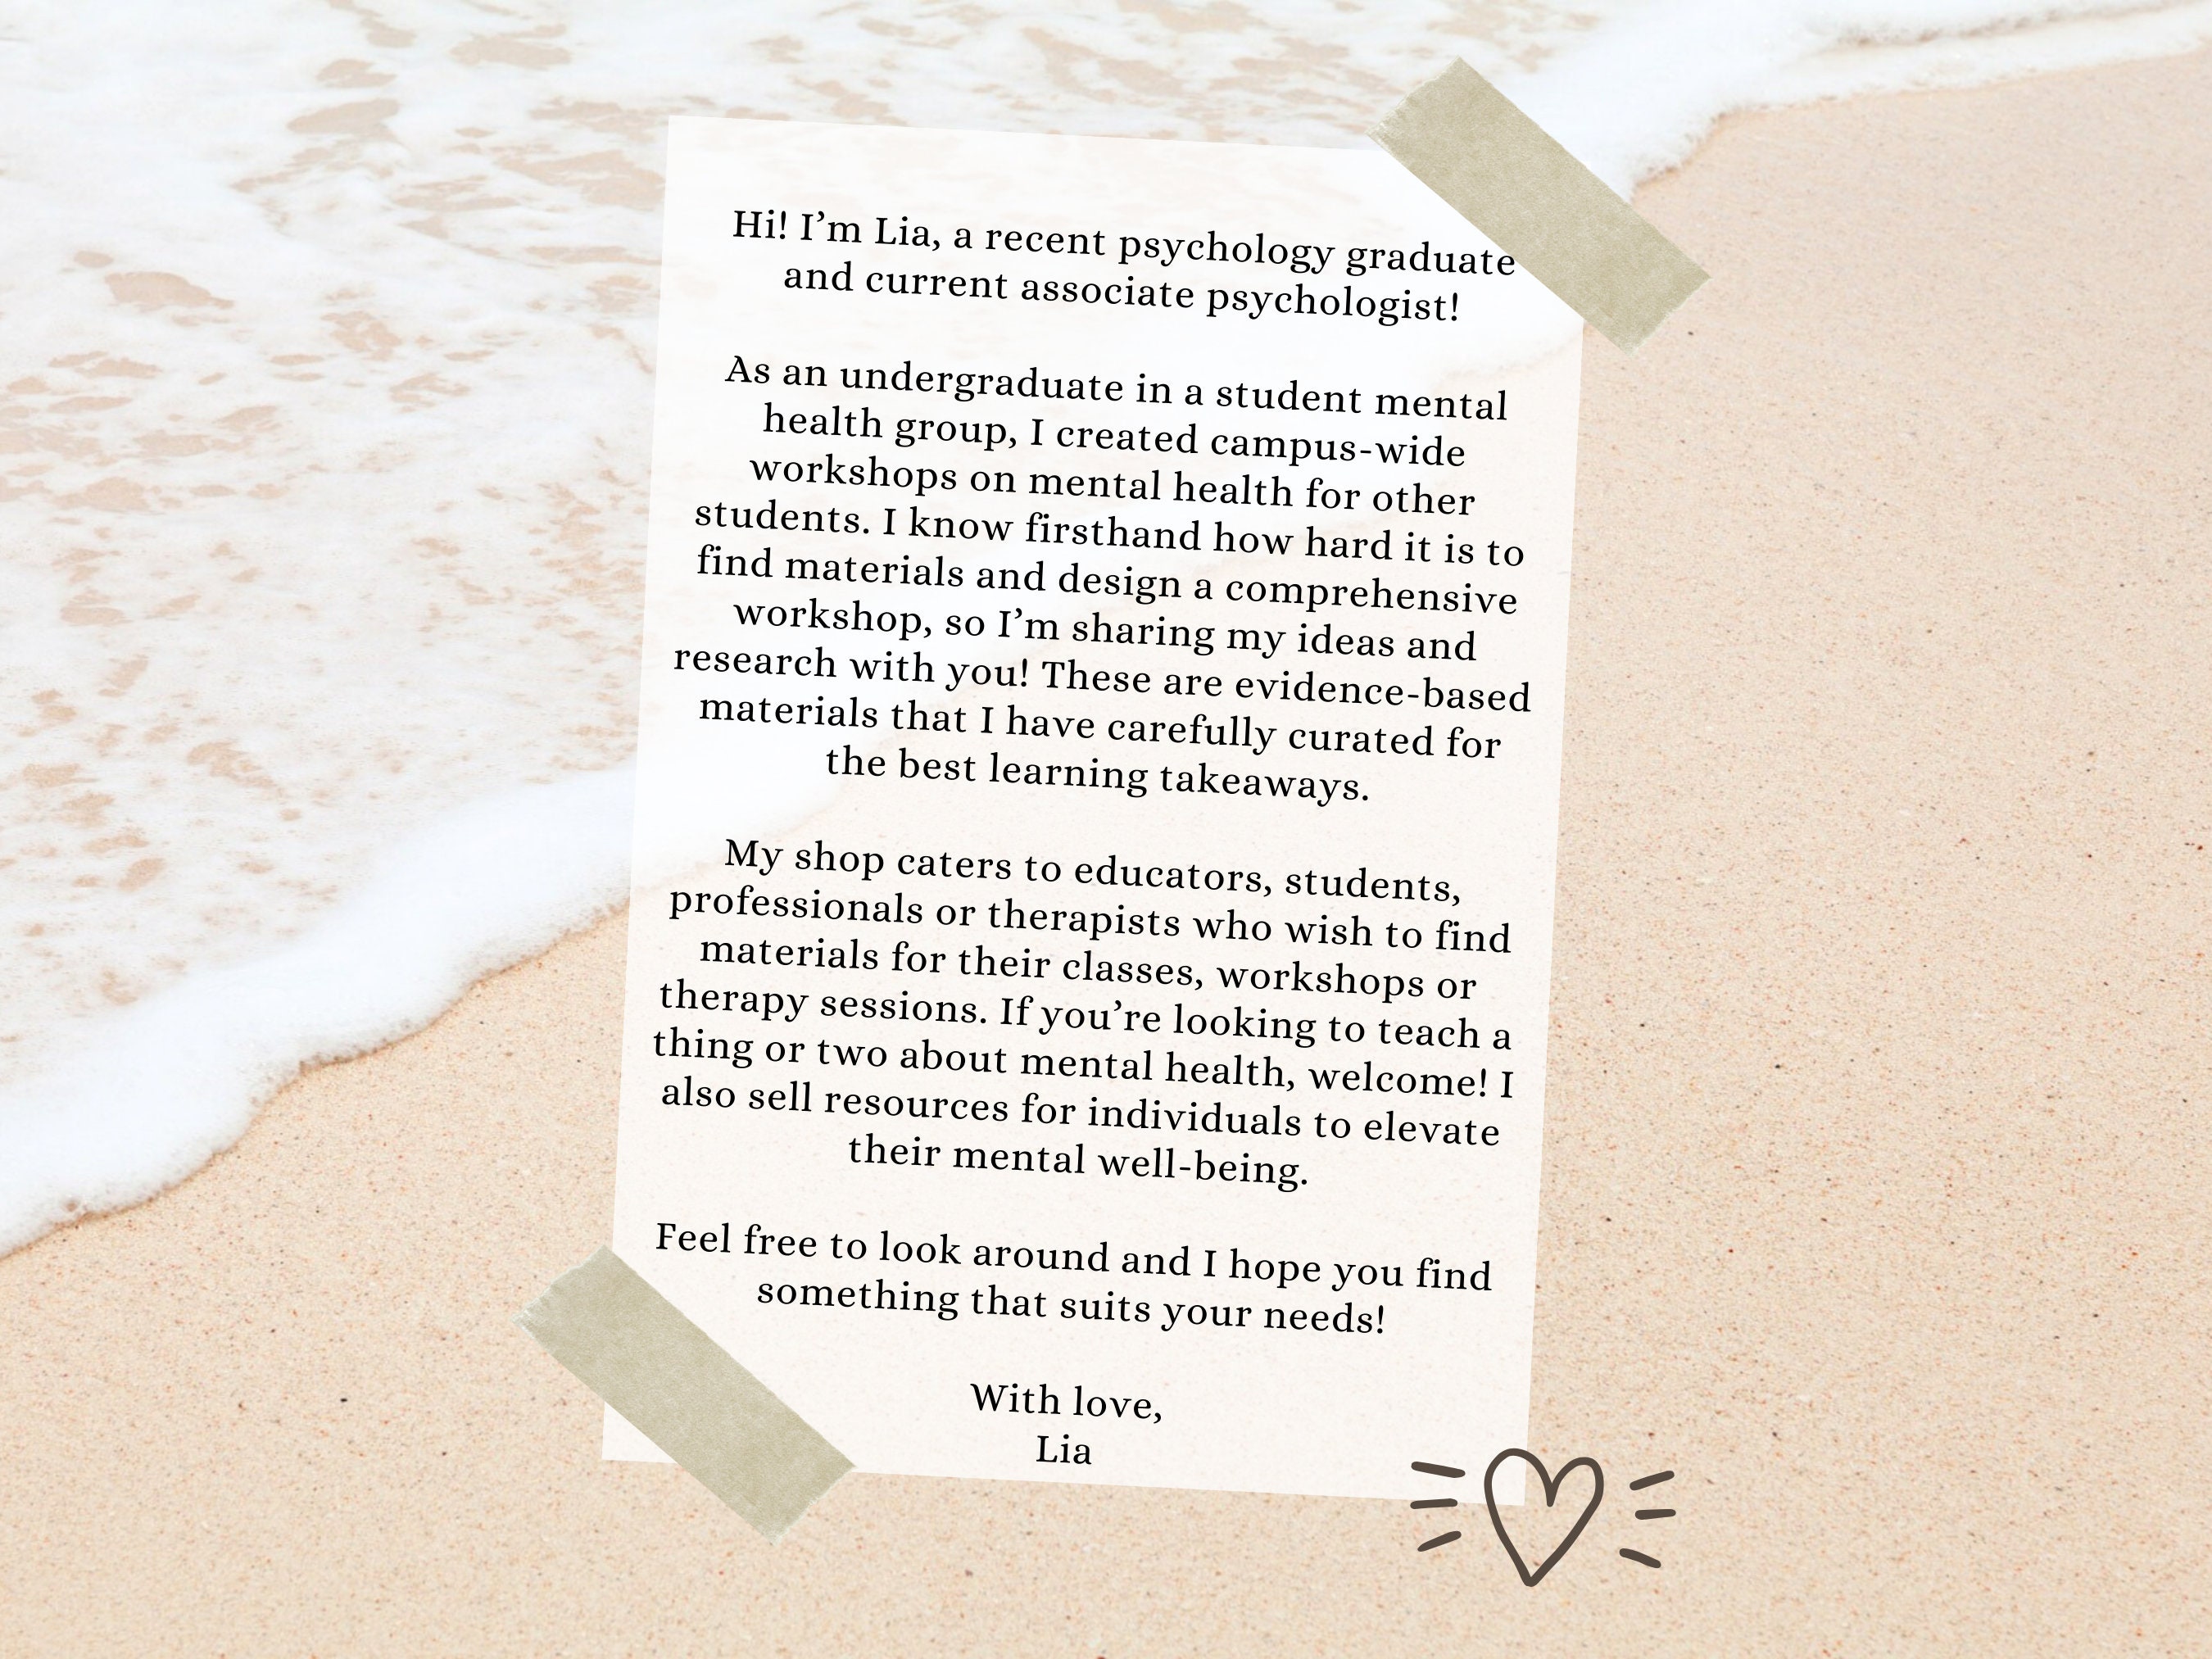 Hi! I’m Lia, a recent psychology graduate
and current associate psychologist!
As an undergraduate in a student mental
health group, I created campus-wide
workshops on mental health for other
students. I know firsthand how hard it is to
find materials and design a comprehensive
workshop, so I’m sharing my ideas and
research with you! These are evidence-based
materials that I have carefully curated for
the best learning takeaways.
My shop caters to educators, students,
professionals or therapists who wish to find
materials for their classes, workshops or
therapy sessions. If you’re looking to teach a
thing or two about mental health, welcome! I
also sell resources for individuals to elevate
their mental well-being.
Feel free to look around and I hope you find
something that suits your needs!
With love,
Lia